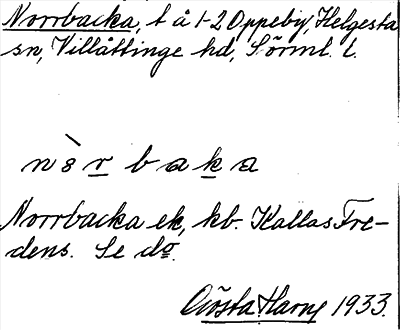 Norrbacka, t å 1-2 Oppeby, Helgesta
sn, Villåttinge hd, Sörml. l.
nòrbaka
Norrbacka ek, kb. Kallas Fre-
dens. Se do.
Gösta Harny 1933.